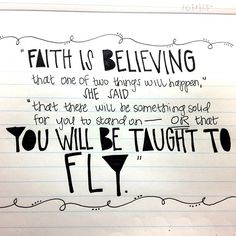 "FAITH IS BELIEVING
that one of two things will happen,"
SHE SAID
"that there will be something solid
for you to stand on — OR that
YOU WILL BE TAUGHT TO
FLY."